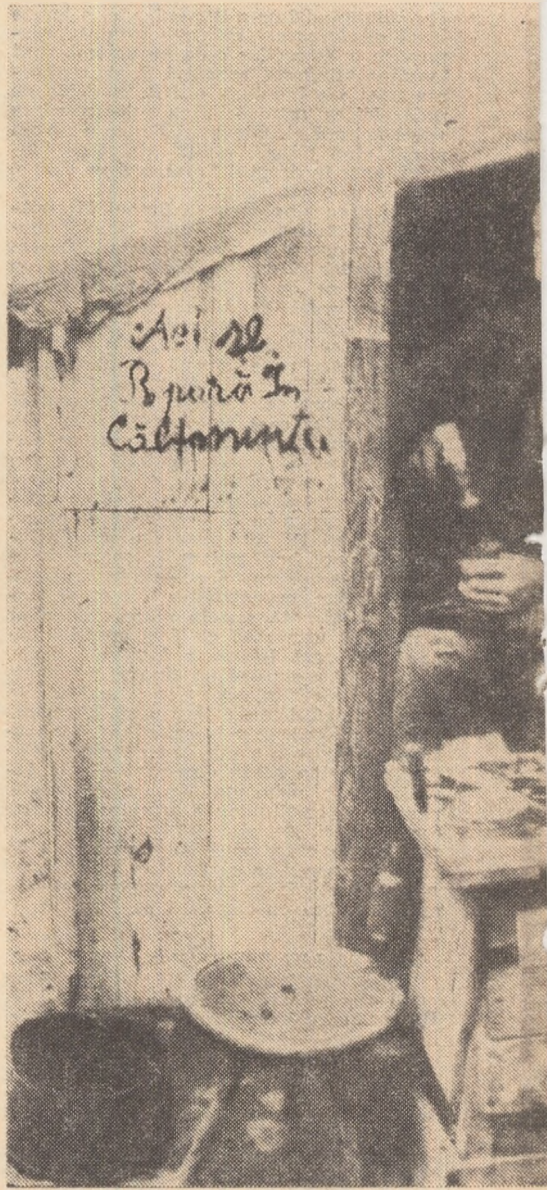 Aci se
Rpară În
Călțaminte.